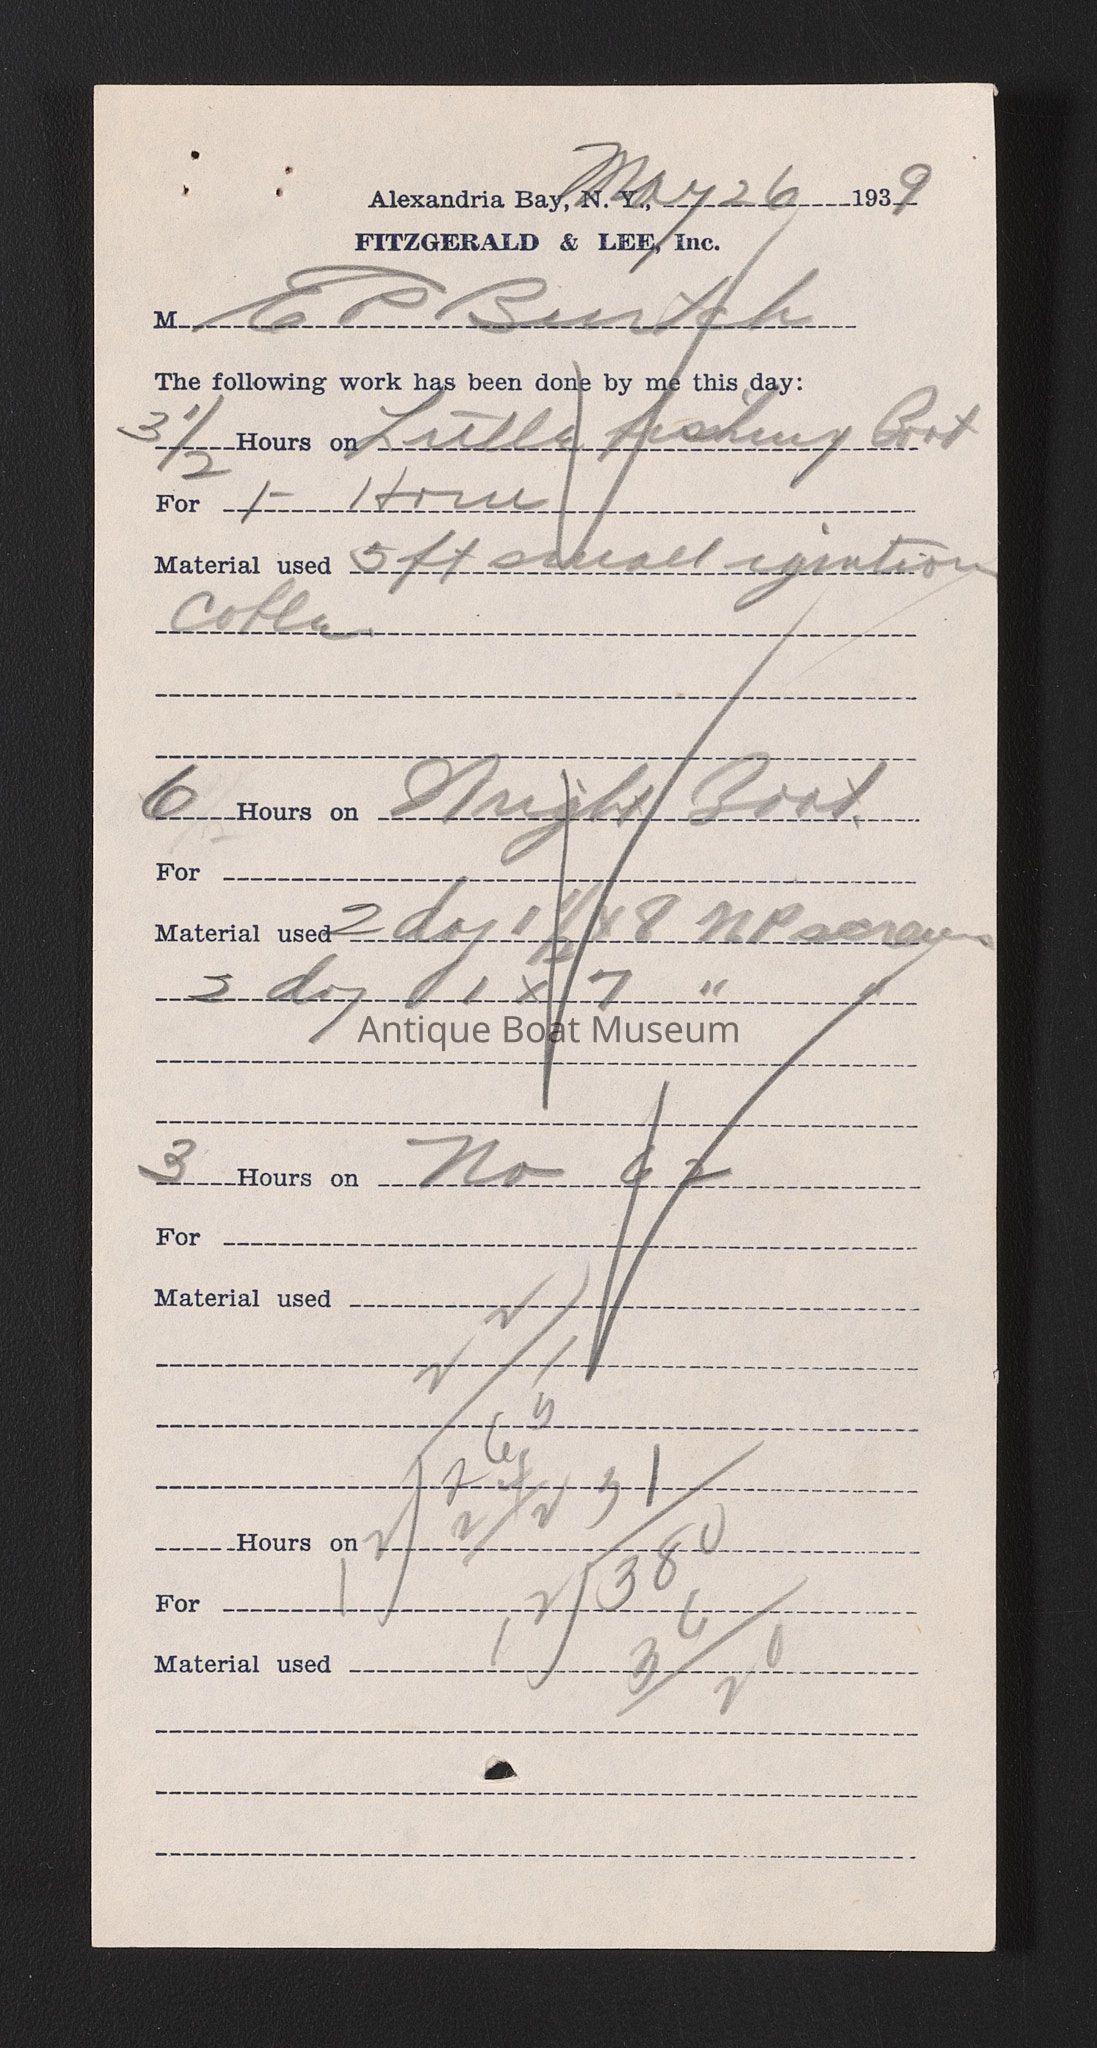 Alexandria Bay, N. Y., May 26 1939
FITZGERALD & LEE, Inc.
M E P Burtch
The following work has been done by me this day:
3 1/2 Hours on Little fishing Boat
For 1 - Hour
Material used 5 ft small ignition
Cable
6 Hours on Wright Boat.
For
Material used 2 doz 1 1/2 x 8 NP screws
2 doz 1 x 7 "
Antique Boat Museum
3 Hours on No 62
For
Material used
Hours on
For
Material used
31
12 380
36
20